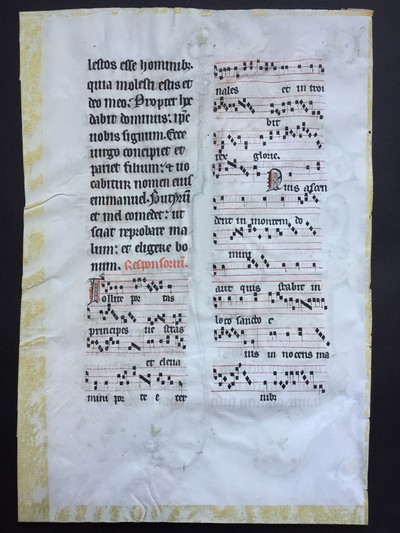 lestos esse hominibz
quia molesti estis et
deo meo: Propter hoc
dabit dominus ipse
vobis signum. Ecce
virgo concipiet et
pariet filium: et vo
cabitur nomen eius
emmanuel. Butyrum
et mel comedet: ut
sciat reprobare ma
lum: et eligere bo
num. Responsoriũ.
Tollite por tas
principes ve stras
et eleva
mini por te e ter
nales et in troi
bit
rex glorie.
Quis ascen
dent in montem do
mini
aut quis stabit in
loco sancto e
ius in nocens ma
nibz